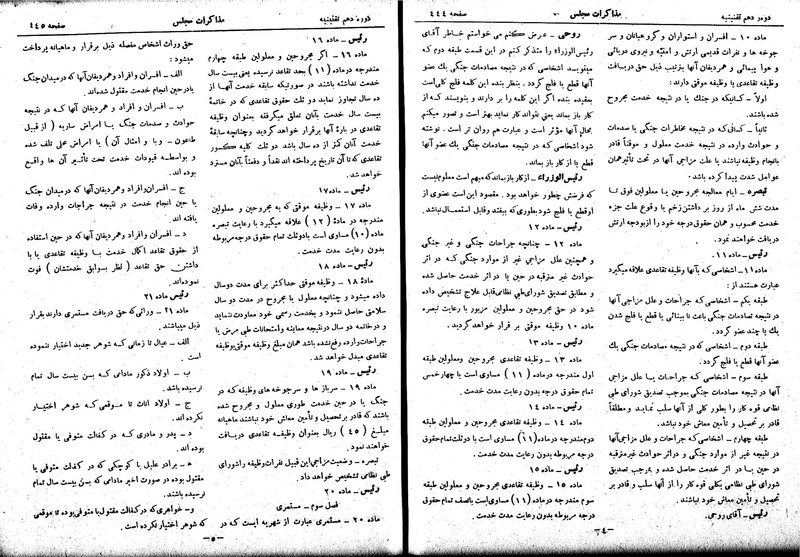 صفحه ٤٤٤
مذاکرات مجلس
دوره دهم تقنینیه
ماده ۱۰ - افسران و استواران و گروهبانان و سر
جوخه ها و نفرات قدیمی ارتش و امنیه و نیروی دریائی
و هوا پیمائی و همردیفان آنها بترتیب ذیل حق دریافت
وظیفه تقاعدی یا وظیفه موقتی دارند:
اولاً - کسانیکه درجنك یا در نتیجه خدمت مجروح
شده باشند.
ثانیاً - کسانی که در نتیجه مخاطرات جنگی یا صدمات
و حوادث وارده در نتیجه خدمت معلول و موقتاً قادر
بانجام وظیفه نباشند یا علت مزاجی آنها در تحت تأثیر همان
عوامل شدت پیدا کرده باشد.
تبصره - ایام معالجه مجروحین یا معلولین فوق تا
مدت شش ماه از روز برداشتن زخم یا وقوع علت جزء
خدمت محسوب و همان حقوق درجه خود را از بودجه ارتش
دریافت خواهند نمود.
رئیس - ماده ۱۱.
ماده ۱۱ - اشخاصی که بآنها وظیفه تقاعدی علاقه میگیرد
عبارت هستند از:
طبقه یکم - اشخاصی که جراحات و علل مزاجی آنها
در نتیجه تصادمات جنگی باعث نابینائی یا قطع یا فلج شدن
یك یا چند عضو گردد.
طبقه دوم - اشخاصی که در نتیجه مصادمات جنگی یك
عضو آنها قطع یا فلج گردد.
طبقه سوم - اشخاصی که جراحات یا علل مزاجی
آنها در نتیجه صدمات جنگی بموجب تصدیق شورای طبی
نظامی قوه کار را بطور کلی از آنها سلب نماید و مطلقاً
قادر بر تحصیل و تأمین معاش خود نباشند.
طبقه چهارم - اشخاصی که جراحات و علل مزاجی آنها
در نتیجه غیر از موارد جنگی و در اثر حوادث غیر مترقبه
در حین یا در اثر خدمت حاصل شده و بموجب تصدیق
شورای طبی نظامی بکلی قوه کار را از آنها سلب و قادر بر
تحصیل و تأمین معاش خود نباشند.
رئیس - آقای روحی.
روحی - عرض کنم می خواستم خاطر آقای
رئیس الوزراء را متذکر کنم در این قسمت طبقه دوم که
میفرمایند اشخاصی که در نتیجه مصادمات جنگی یك عضو
آنها قطع یا فلج گردد. بنظر بنده این کلمه فلج کلی است
بعقیده بنده اگر این کلمه را بر دارند و بنویسند که از
کار باز بماند یعنی نتواند کار نماید بهتر است و تصور میکنم
بحال آنها مؤثر تر است و عبارت هم روان تر است. نوشته
شود اشخاصی که در نتیجه مصادمات جنگی یك عضو آنها
قطع یا از کار باز بماند.
رئیس الوزراء - از کار باز بماند که مبهم است معلوم نیست
که غرضش چطور خواهد بود. مقصود این است عضوی از
او قطع یا فلج شود بطوری که بیفتد و قابل استعمال نباشد.
رئیس - ماده ۱۲
ماده ۱۲ - چنانچه جراحات جنگی و غیر جنگی
و همچنین علل مزاجی غیر از موارد جنگی که در اثر
حوادث غیر مترقبه در حین یا در اثر خدمت حاصل شده
و مطابق تصدیق شورای طبی نظامی قابل علاج تشخیص داده
شود در حق مجروحین و معلولین مزبور با رعایت تبصره
ماده ۱۰ وظیفه موقتی بر قرار خواهد گردید.
رئیس - ماده ۱۳
ماده ۱۳ - وظیفه تقاعدی مجروحین و معلولین طبقه
اول مندرجه در ماده (۱۱) مساوی است با چهار خمس
تمام حقوق درجه بدون رعایت مدت خدمت.
رئیس - ماده ۱۴
ماده ۱۴ - وظیفه تقاعدی مجروحین و معلولین طبقه
دوم مندرجه در ماده (۱۱) مساوی است با دو ثلث تمام حقوق
درجه مربوطه بدون رعایت مدت خدمت.
رئیس - ماده ۱۵
ماده ۱۵ - وظیفه تقاعدی مجروحین و معلولین طبقه
سوم مندرجه در ماده (۱۱) مساوی است با نصف تمام حقوق
درجه مربوطه بدون رعایت مدت خدمت.
- ٤ -
دوره دهم تقنینیه
مذاکرات مجلس
صفحه ٤٤٥
رئیس - ماده ۱۶
ماده ۱۶ - اگر مجروحین و معلولین طبقه چهارم
مندرجه در ماده (۱۱) بحد تقاعد نرسیده یعنی بیست سال
خدمت نداشته باشند در صورتیکه سابقه خدمت آنها از
ده سال تجاوز نماید دو ثلث حقوق تقاعدی که در خاتمه
بیست سال خدمت بآنان تعلق میگرفته بعنوان وظیفه
تقاعدی در بارهٔ آنها برقرار خواهد گردید و چنانچه سابقه
خدمت آنان کمتر از ده سال باشد دو ثلث کلیه کسور
تقاعدی که تا آن تاریخ پرداخته اند نقداً و دفعتاً بآنان مسترد
خواهد شد.
رئیس - ماده ۱۷
ماده ۱۷ - وظیفه موقتی که به مجروحین و معلولین
مندرجه در مادهٔ (۱۲) علاقه میگیرد با رعایت تبصره
ماده (۱۰) مساوی است با دو ثلث تمام حقوق درجه مربوطه
بدون رعایت مدت خدمت.
رئیس - ماده ۱۸
مادهٔ ۱۸ - وظیفه موقتی حداکثر برای مدت دو سال
داده میشود و چنانچه معلول یا مجروح در مدت دو سال
سلامتی حاصل ننمود و بخدمت رسمی خود معاودت ننماید
و در خاتمه دو سال در نتیجه معاینه و امتحانات طبی مرض یا
جراحات وارده رفع نشده باشد همان مبلغ وظیفه موقتی بوظیفه
تقاعدی مبدل خواهد شد.
رئیس - ماده ۱۹
ماده ۱۹ - سرباز ها و سر جوخه های وظیفه که در
جنگ یا در حین خدمت طوری معلول و مجروح شده
باشند که قادر بر تحصیل و تأمین معاش خود نباشند ماهیانه
مبلغ (٤٥) ریال بعنوان وظیفه تقاعدی دریافت
خواهند نمود.
تبصره - وضعیت مزاجی این قبیل نفرات وظیفه را شورای
طبی نظامی تشخیص خواهد داد.
رئیس - ماده ۲۰
فصل سوم - مستمری
ماده ۲۰ - مستمری عبارت از شهریه است که در
حق وراث اشخاص مفصله ذیل برقرار و ماهیانه پرداخت
میشود:
الف - افسران و افراد و همردیفان آنها که در میدان جنگ
یا در حین انجام خدمت مقتول شده اند.
ب - افسران و افراد و همردیفان آنها که در نتیجه
حوادث و صدمات جنگ یا امراض ساریه (از قبیل
طاعون - وبا و امثال آن) یا امراض محلی تلف شده
و بواسطه قیودات خدمت تحت تأثیر آن ها واقع
بوده اند.
ج - افسران و افراد و همردیفان آنها که در میدان جنگ
یا حین انجام خدمت در نتیجه جراحات وارده وفات
یافته اند.
د - افسران و افراد و همردیفان آنها که در حین استفاده
از حقوق تقاعد اکمال خدمت یا وظیفه تقاعدی یا با
داشتن حق تقاعد (نظر بسوابق خدمتشان) فوت
نموده اند.
رئیس - ماده ۲۱
ماده ۲۱ - وراثی که حق دریافت مستمری دارند بقرار
ذیل میباشند.
الف - عیال تا زمانی که شوهر جدید اختیار ننموده
است.
ب - اولاد ذکور مادامی که بسن بیست سال تمام
نرسیده باشد.
ج - اولاد اناث تا موقعی که شوهر اختیار
نکرده اند.
د - پدر و مادری که در کفالت متوفی یا مقتول
بوده اند.
ه - برادر علیل یا کوچکی که در کفالت متوفی یا
مقتوله بوده در صورت اخیر مادامی که بسن بیست سال تمام
نرسیده باشند.
و - خواهری که در کفالت مقتول یا متوفی بوده تا موقعی
که شوهر اختیار نکرده است.
- ٥ -